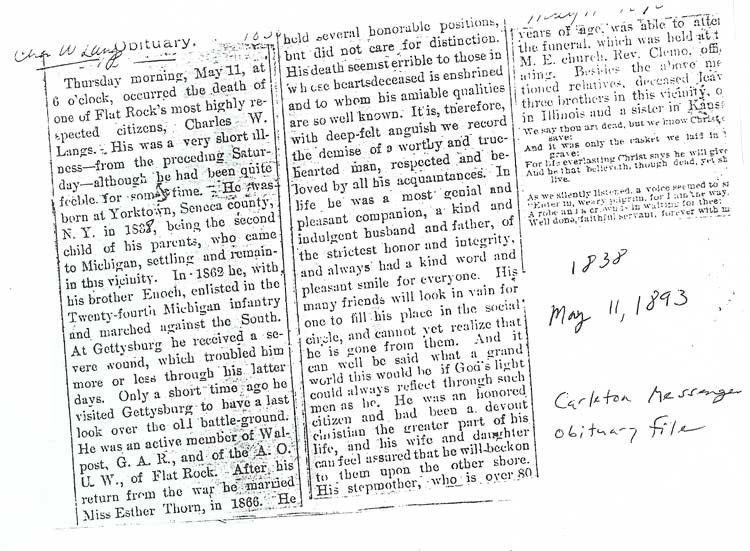 Chas W Langs
Obituary.
Thursday morning, May 11, at
6 o'clock, occurred the death of
one of Flat Rock's most highly re-
spected citizens, Charles W.
Langs. His was a very short ill-
ness—from the preceding Satur-
day—although he had been quite
feeble for some time. He was
born at Yorktown, Seneca county,
N. Y. in 1838, being the second
child of his parents, who came
to Michigan, settling and remain-
in this vicinity. In 1862 he, with
his brother Enoch, enlisted in the
Twenty-fourth Michigan infantry
and marched against the South.
At Gettysburg he received a se-
vere wound, which troubled him
more or less through his latter
days. Only a short time ago he
visited Gettysburg to have a last
look over the old battle-ground.
He was an active member of Wal-
post, G. A. R., and of the A. O.
U. W., of Flat Rock. After his
return from the war he married
Miss Esther Thorn, in 1866. He
held several honorable positions,
but did not care for distinction.
His death seems terrible to those in
whose hearts deceased is enshrined
and to whom his amiable qualities
are so well known. It is, therefore,
with deep-felt anguish we record
the demise of a worthy and true-
hearted man, respected and be-
loved by all his acquaintances. In
life he was a most genial and
pleasant companion, a kind and
indulgent husband and father, of
the strictest honor and integrity,
and always had a kind word and
pleasant smile for everyone. His
many friends will look in vain for
one to fill his place in the social
circle, and cannot yet realize that
he is gone from them. And it
can well be said what a grand
world this would be if God's light
could always reflect through such
men as he. He was an honored
citizen and had been a devout
christian the greater part of his
life, and his wife and daughter
can feel assured that he will beckon
to them upon the other shore.
His stepmother, who is over 80
years of age, was able to atte
the funeral, which was held at t
M. E. church, Rev. Clemo, offi
ating. Besides the above me
tioned relatives, deceased leav
three brothers in this vicinity, o
in Illinois and a sister in Kans
We say thou art dead, but we know Christ c
save;
And it was only the casket we laid in
grave;
For life everlasting Christ says he will give
And he that believeth, though dead, yet sh
live.
As we silently listened, a voice seemed to s
"Enter in, weary pilgrim, for I am the way.
A robe and a crown is in waiting for thee;
Well done, faithful servant, forever with m
1838
May 11, 1893
Carleton Messenger
Obituary File